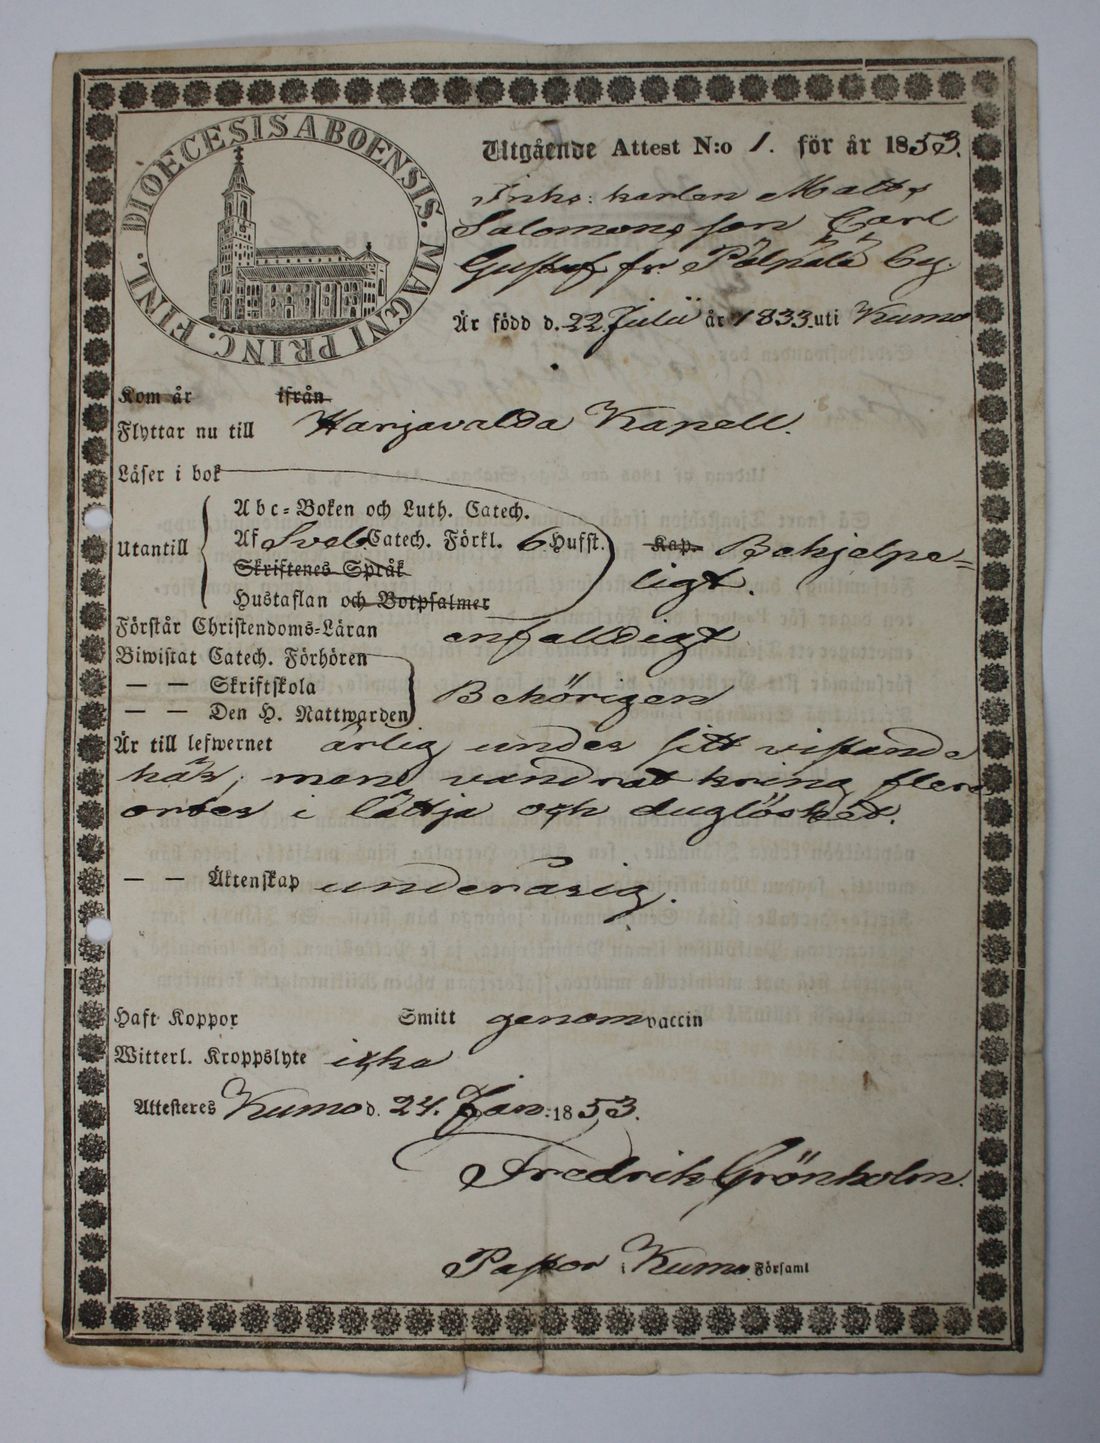 DIOECESIS ABOENSIS. MAGNI PRINC. FINL.
Utgående Attest N:o 1. för år 1853.
Inhs: karlen Matts
Salomons son Carl
Gustaf fr. Pälpälä by.
Är född d. 22 Julii år 1833 uti Kumo
Kom år ifrån
Flyttar nu till Harjavalda Kapell.
Läser i bok
Utantill
Abc-Boken och Luth. Catech.
Af Sveb. Catech. Förkl. 6 Hufst. Kap. Behjelpe-
ligt.
Skriftenes Språk
Hustaflan och Botpsalmer
Förstår Christendoms-Läran enfaldigt
Biwistat Catech. Förhören
— — Skriftskola
Behörigen
— — Den H. Nattwarden
Är till lefwernet ärlig under sitt vistande
här, men vandrat kring flere
orter i lättja och duglöshet.
— — Äktenskap underårig.
Haft Koppor Smitt genom vaccin
Witterl. Kroppslyte icke
Attesteres Kumo d. 24. Jan. 1853.
Fredrik Grönholm.
Pastor i Kumo Församl